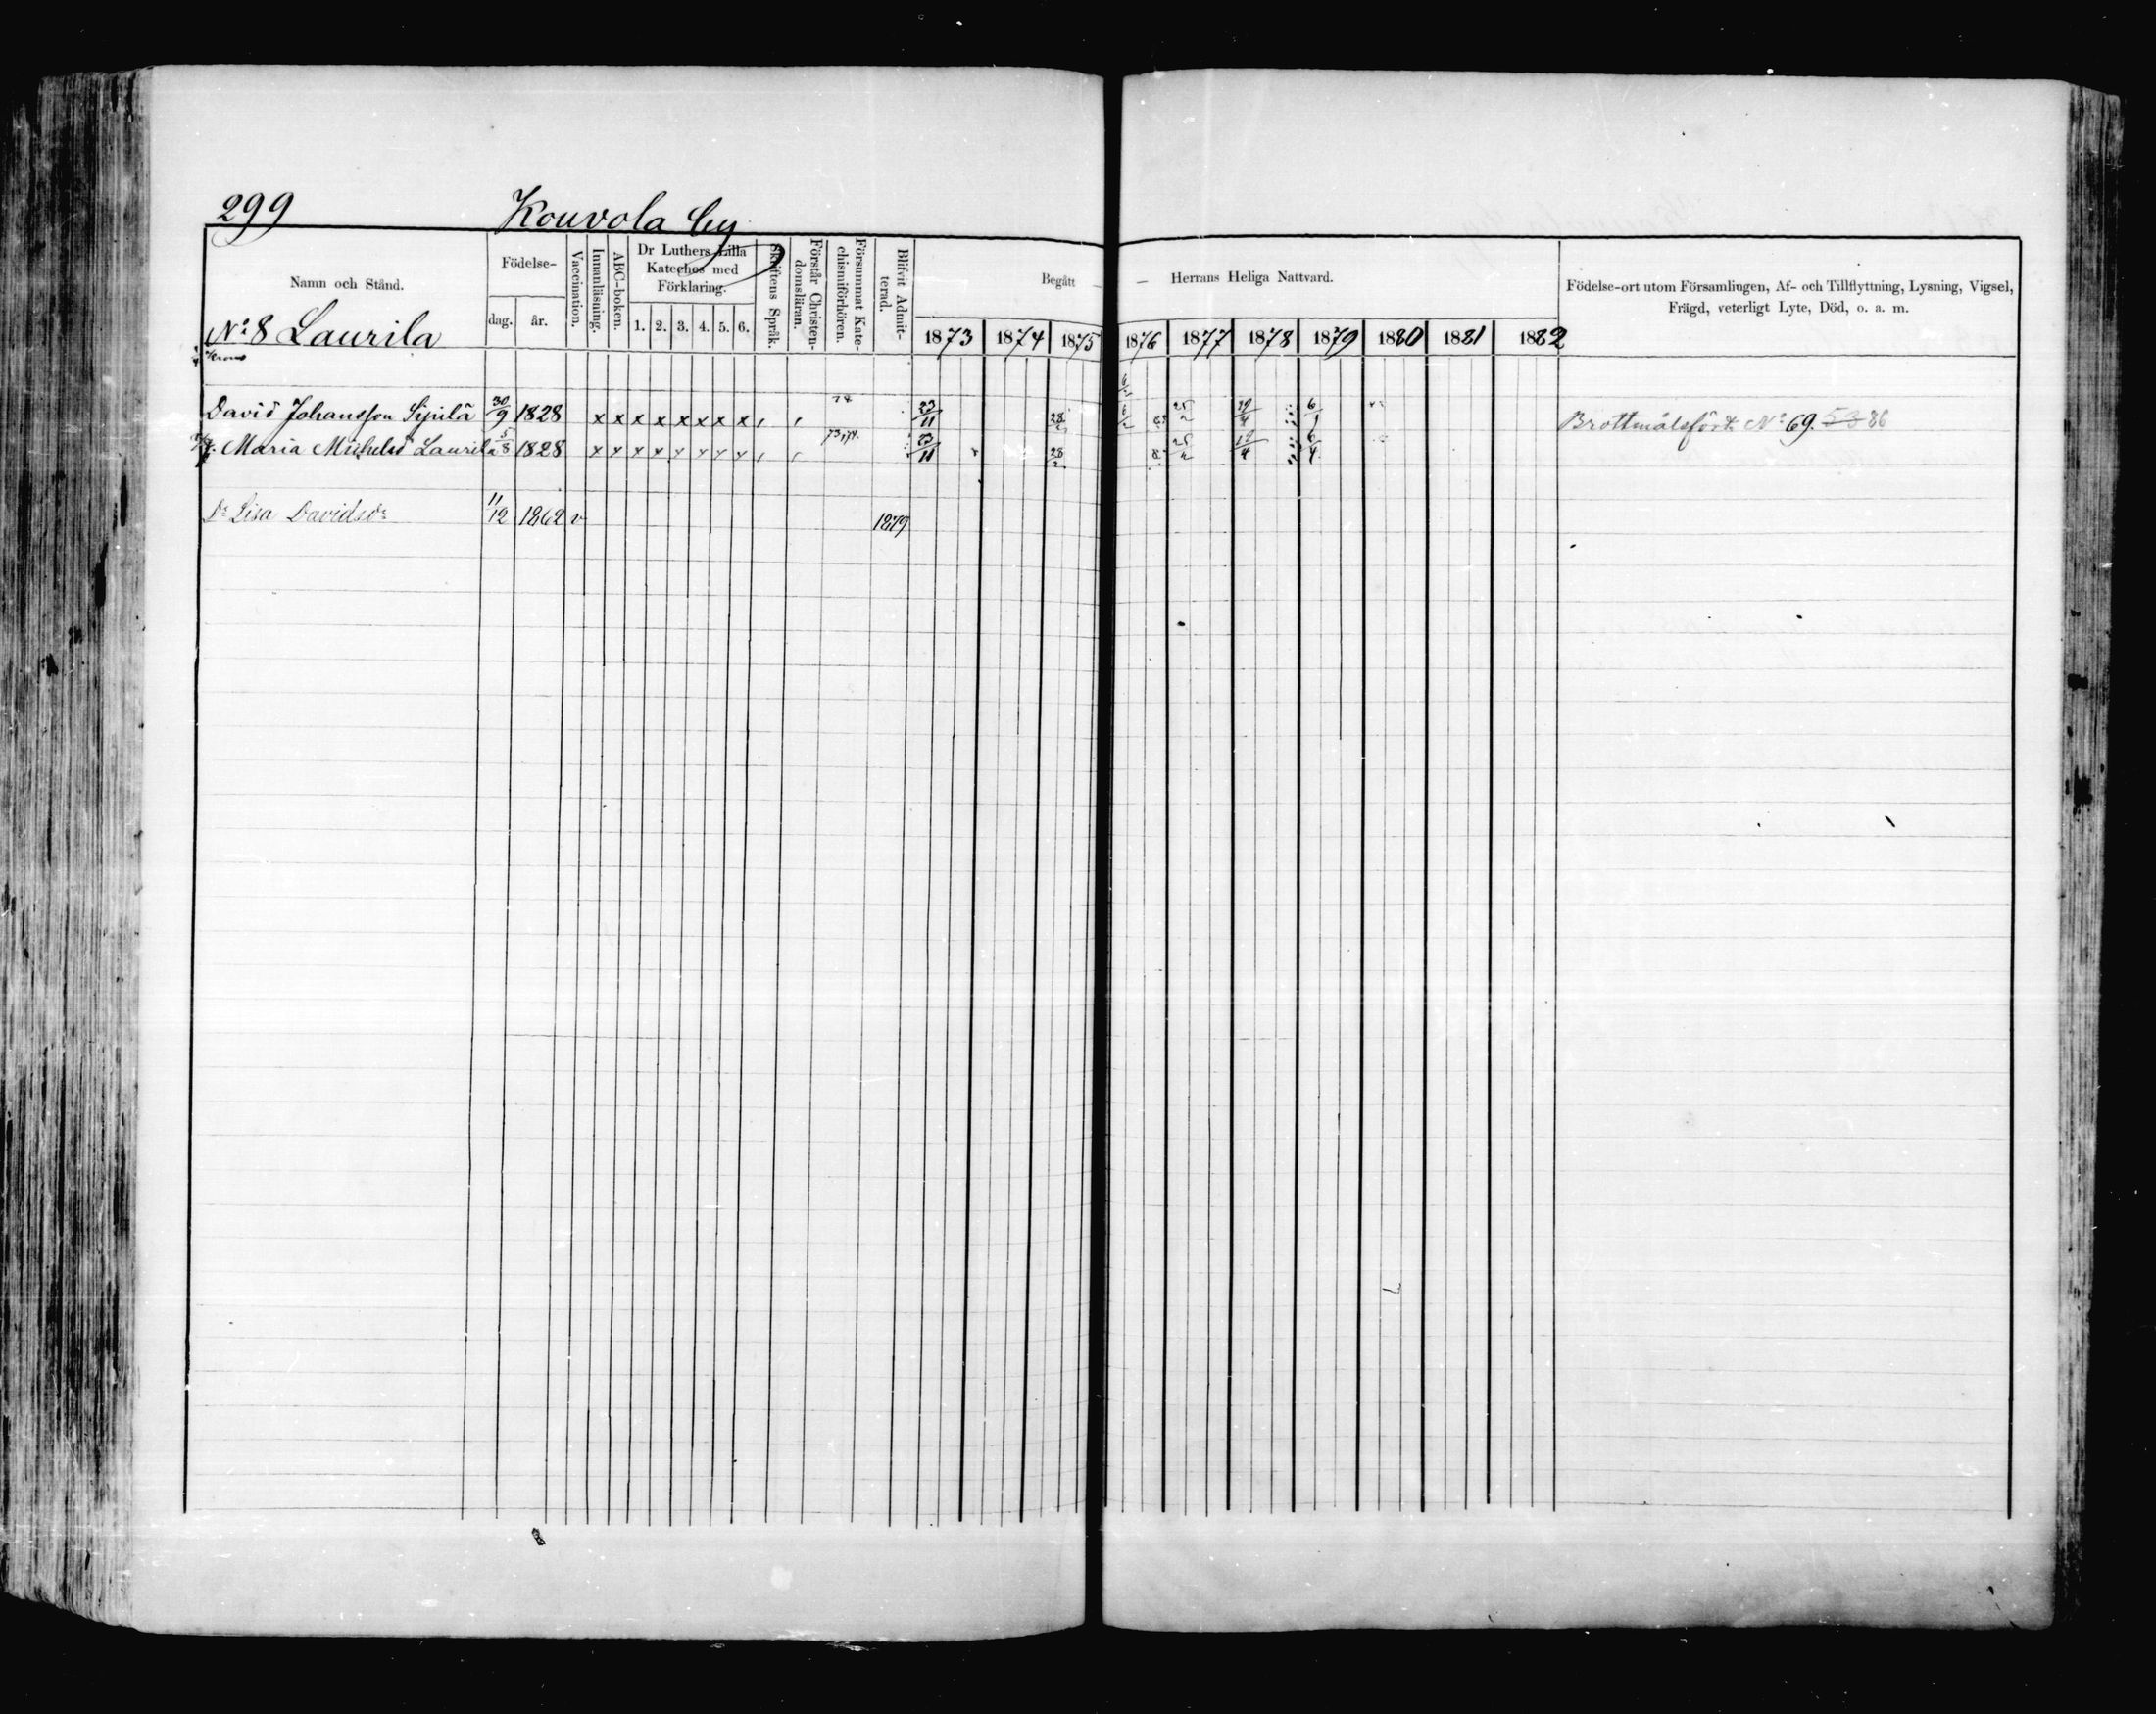 299 Kouvola by
Namn och Stånd. Födelse- dag. år. Vaccination. Innanläsning. ABC-boken. Dr Luthers Lilla Kateches med Förklaring. 1. 2. 3. 4. 5. 6. Skriftens Språk. Förstår Christendomsläran. Försummat Katechismiförhören. Blifvit Admitterad. Begått Herrans Heliga Nattvard. Födelse-ort utom Församlingen, Af- och Tillflyttning, Lysning, Vigsel, Frägd, veterligt Lyte, Död, o. a. m.
No 8 Laurila 1873 1874 1875 1876 1877 1878 1879 1880 1881 1882
David Johansson Sipilä 30/9 1828 x x x x x x x x 23/11 28/2 25/2 Brottmålsförk No 69. 53 86
Maria Michelsd Laurila 5/8 1828 x x x x x x x x 73,74. 23/11 28/2 25/2 6/4
Dr Lisa Davidsdr 11/12 1862 v 1879